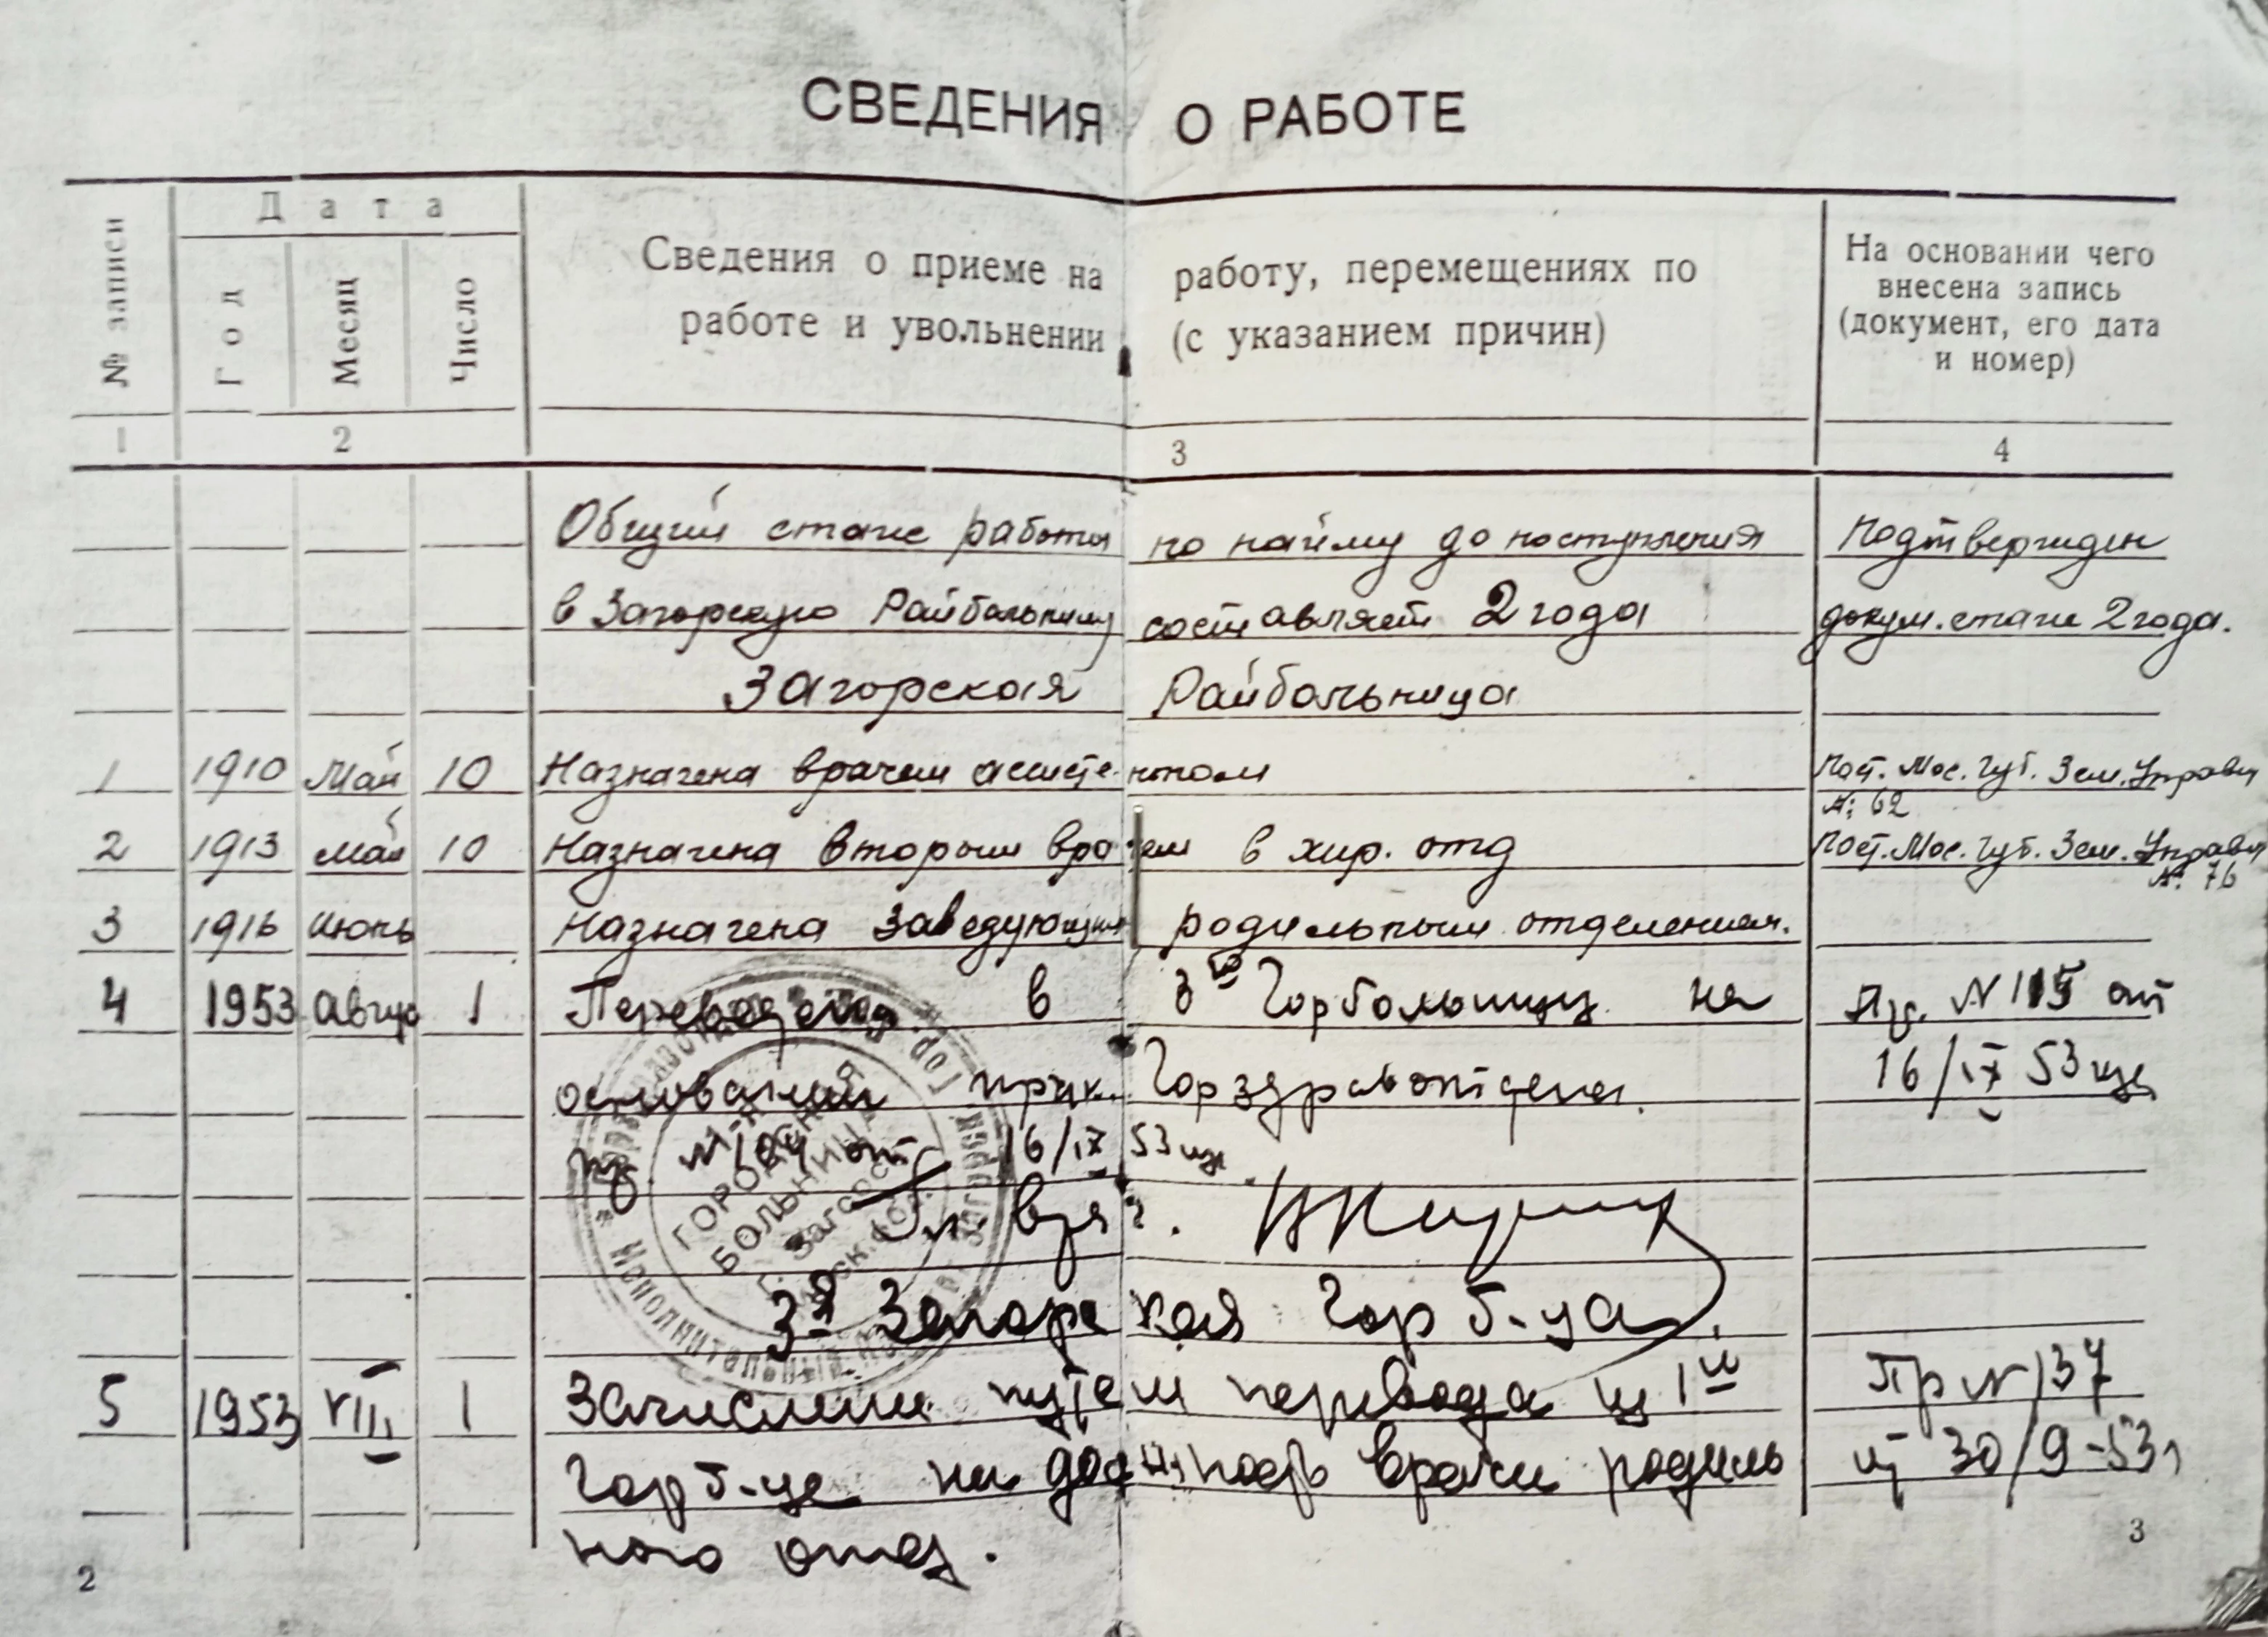 СВЕДЕНИЯ О РАБОТЕ
№ записи
Дата
Год
Месяц
Число
Сведения о приеме на работу, перемещениях по
работе и увольнении (с указанием причин)
На основании чего
внесена запись
(документ, его дата
и номер)
1 2 3 4
Общий стаж работы по найму до поступления Подтвержден
в Загорскую Райбольницу составляет 2 года докум. стаж 2 года.
Загорская Райбольница
1 1910 Май 10 Назначена врачем ассистентом Пост. Мос. Губ. Зем. Управы
№ 62
2 1913 май 10 Назначена вторым врачем в хир. отд Пост. Мос. Губ. Зем. Управы
№ 76
3 1916 июнь Назначена Заведующим родильным отделением.
4 1953 Август 1 Переведена в 3ю Горбольницу на Пр. N 115 от
основании прик. Горздравотдела. 16/IX 53
пр. N 104 от 16/IX 53
Гл. врач.
3я Загорская Гор б-ца.
5 1953 VIII 1 Зачислена путем перевода из 1й Пр N 137
Гор б-це на должность врача родиль 30/9-53г
ного отд.
ГОРОДСКАЯ
БОЛЬНИЦА
г. Загорск
2
3